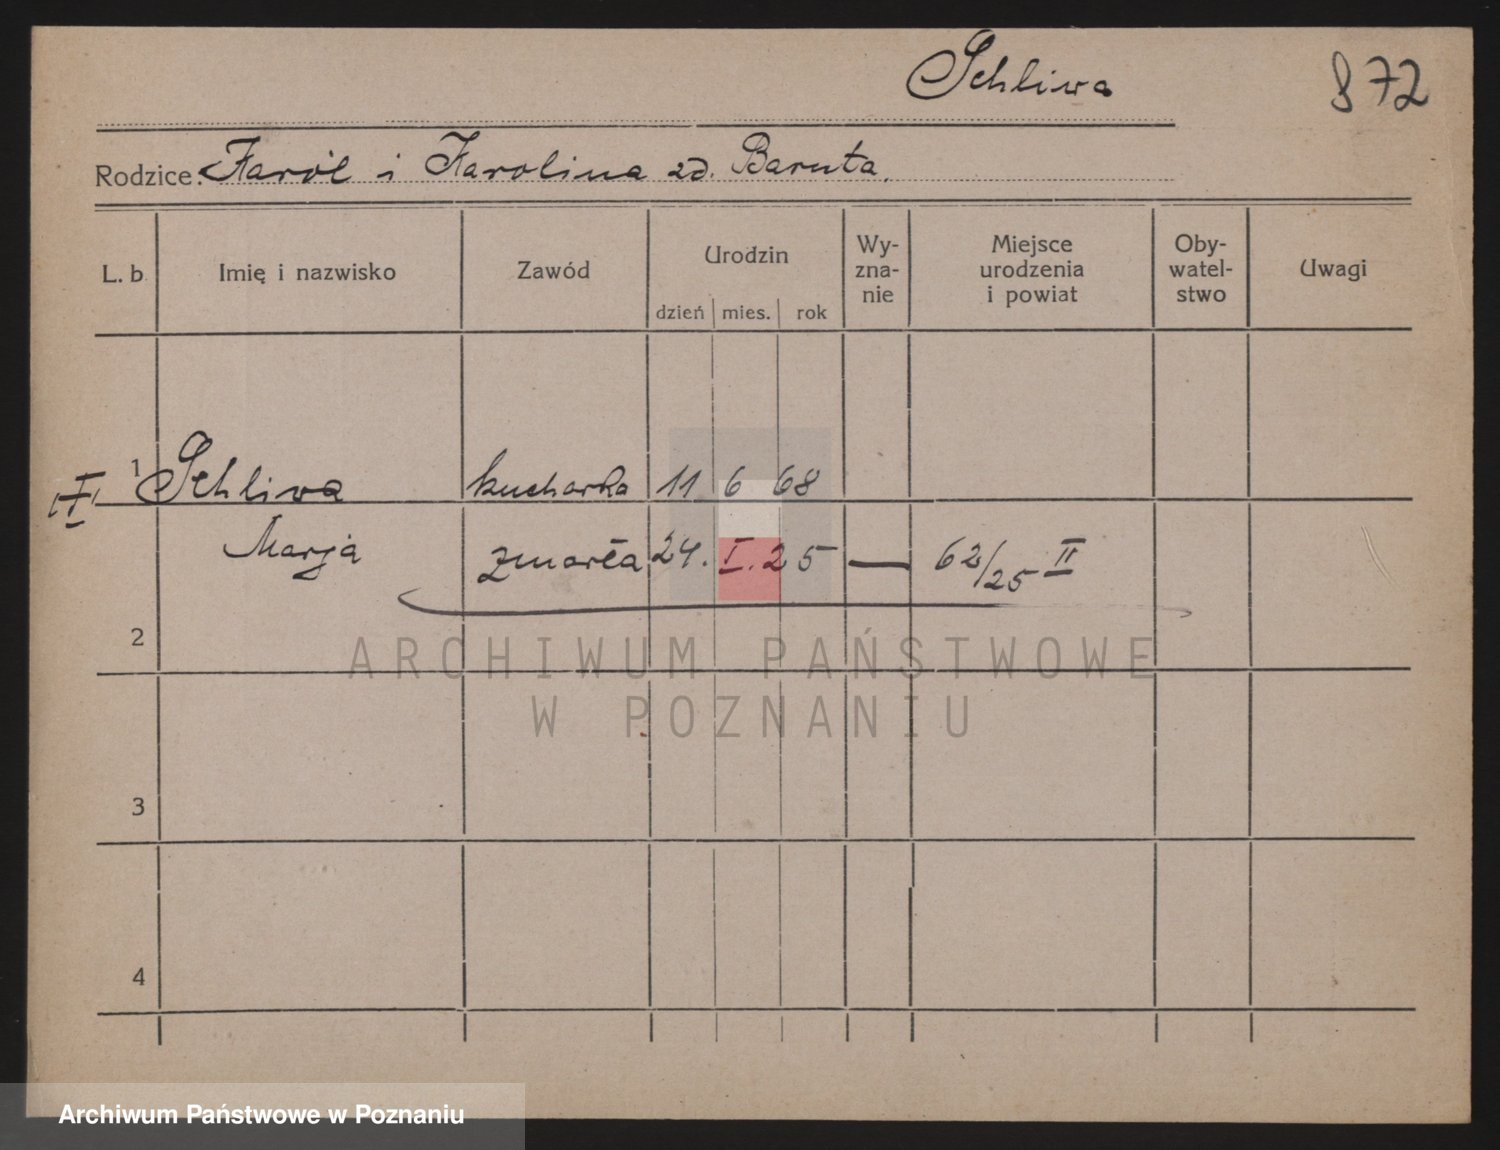 Schliwa 872
Rodzice: Karól i Karolina zd. Baruta.
L. b. Imię i nazwisko Zawód Urodzin dzień mies. rok Wy-zna-nie Miejsce urodzenia i powiat Oby-watel-stwo Uwagi
I 1 Schliwa kucharka 11 6 68
Marja zmarła 24. I. 25 — 62/25 II
2
ARCHIWUM PAŃSTWOWE
W POZNANIU
3
4
Archiwum Państwowe w Poznaniu